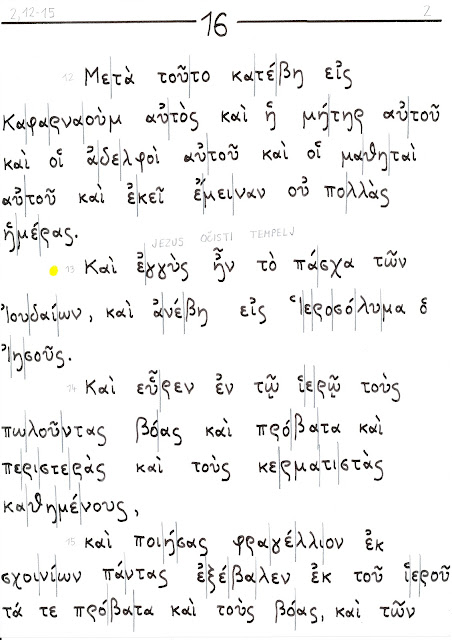 2,12-15 16 2
12 Μετὰ τοῦτο κατέβη εἰς
Καφαρναοὺμ αὐτὸς καὶ ἡ μήτηρ αὐτοῦ
καὶ οἱ ἀδελφοὶ αὐτοῦ καὶ οἱ μαθηταὶ
αὐτοῦ καὶ ἐκεῖ ἔμειναν οὐ πολλὰς
ἡμέρας.
JEZUS OČISTI TEMPELJ
13 Καὶ ἐγγὺς ἦν τὸ πάσχα τῶν
Ἰουδαίων, καὶ ἀνέβη εἰς Ἱεροσόλυμα ὁ
Ἰησοῦς.
14 Καὶ εὗρεν ἐν τῷ ἱερῷ τοὺς
πωλοῦντας βόας καὶ πρόβατα καὶ
περιστερὰς καὶ τοὺς κερματιστὰς
καθημένους,
15 καὶ ποιήσας φραγέλλιον ἐκ
σχοινίων πάντας ἐξέβαλεν ἐκ τοῦ ἱεροῦ
τά τε πρόβατα καὶ τοὺς βόας, καὶ τῶν